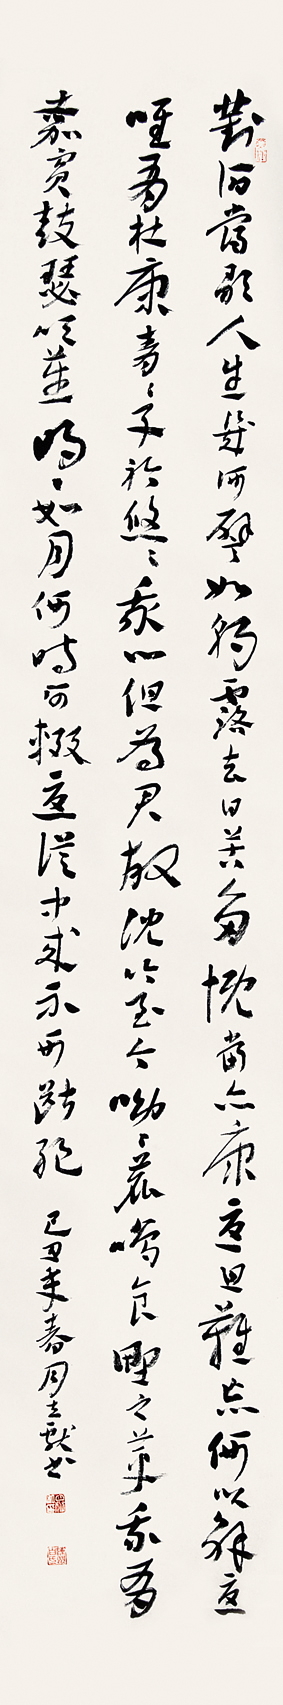 對酒當歌人生幾何譬如朝露去日苦多慨當亦康憂思難忘何以解憂
唯有杜康青々子衿悠々我心但為君故沈吟至今呦々鹿鳴食野之苹我有
嘉賓鼓瑟吹笙明々如月何時可輟憂從中來不可斷絕 己丑年春月書